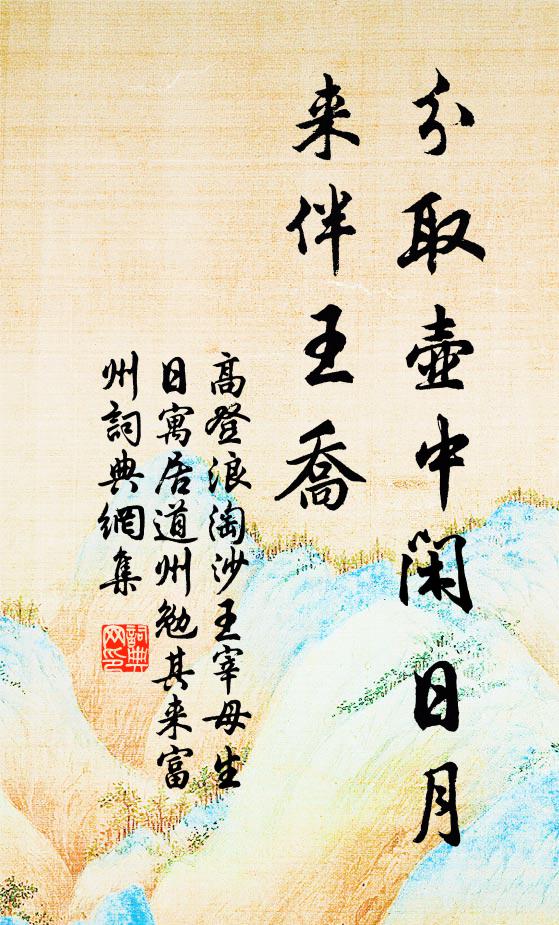 分取壺中閑日月
来伴王喬
高登浪淘沙王宰母生
日寓居道州勉其来富
州詞典網集
詞典網印